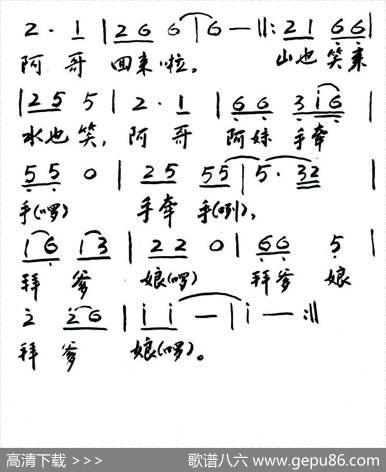 2 · 1 | 2 6 6 | 6 — ‖: 2 1 6 6 |
阿 哥 回来 啦。 山也 笑来
| 2 5 5 | 2 · 1 | 6 6 3 1 6 |
水也 笑, 阿 哥 阿妹 手牵
5 5 0 | 2 5 5 5 | 5 · 3 2 |
手(啰) 手牵 手(咧),
1 6 1 3 | 2 2 0 | 6 6 5 |
拜 爹 娘(啰) 拜爹 娘
2 2 6 | i i — | i — :‖
拜 爹 娘(啰)。
高清下载 >>> 歌谱八六 www.gepu86.com